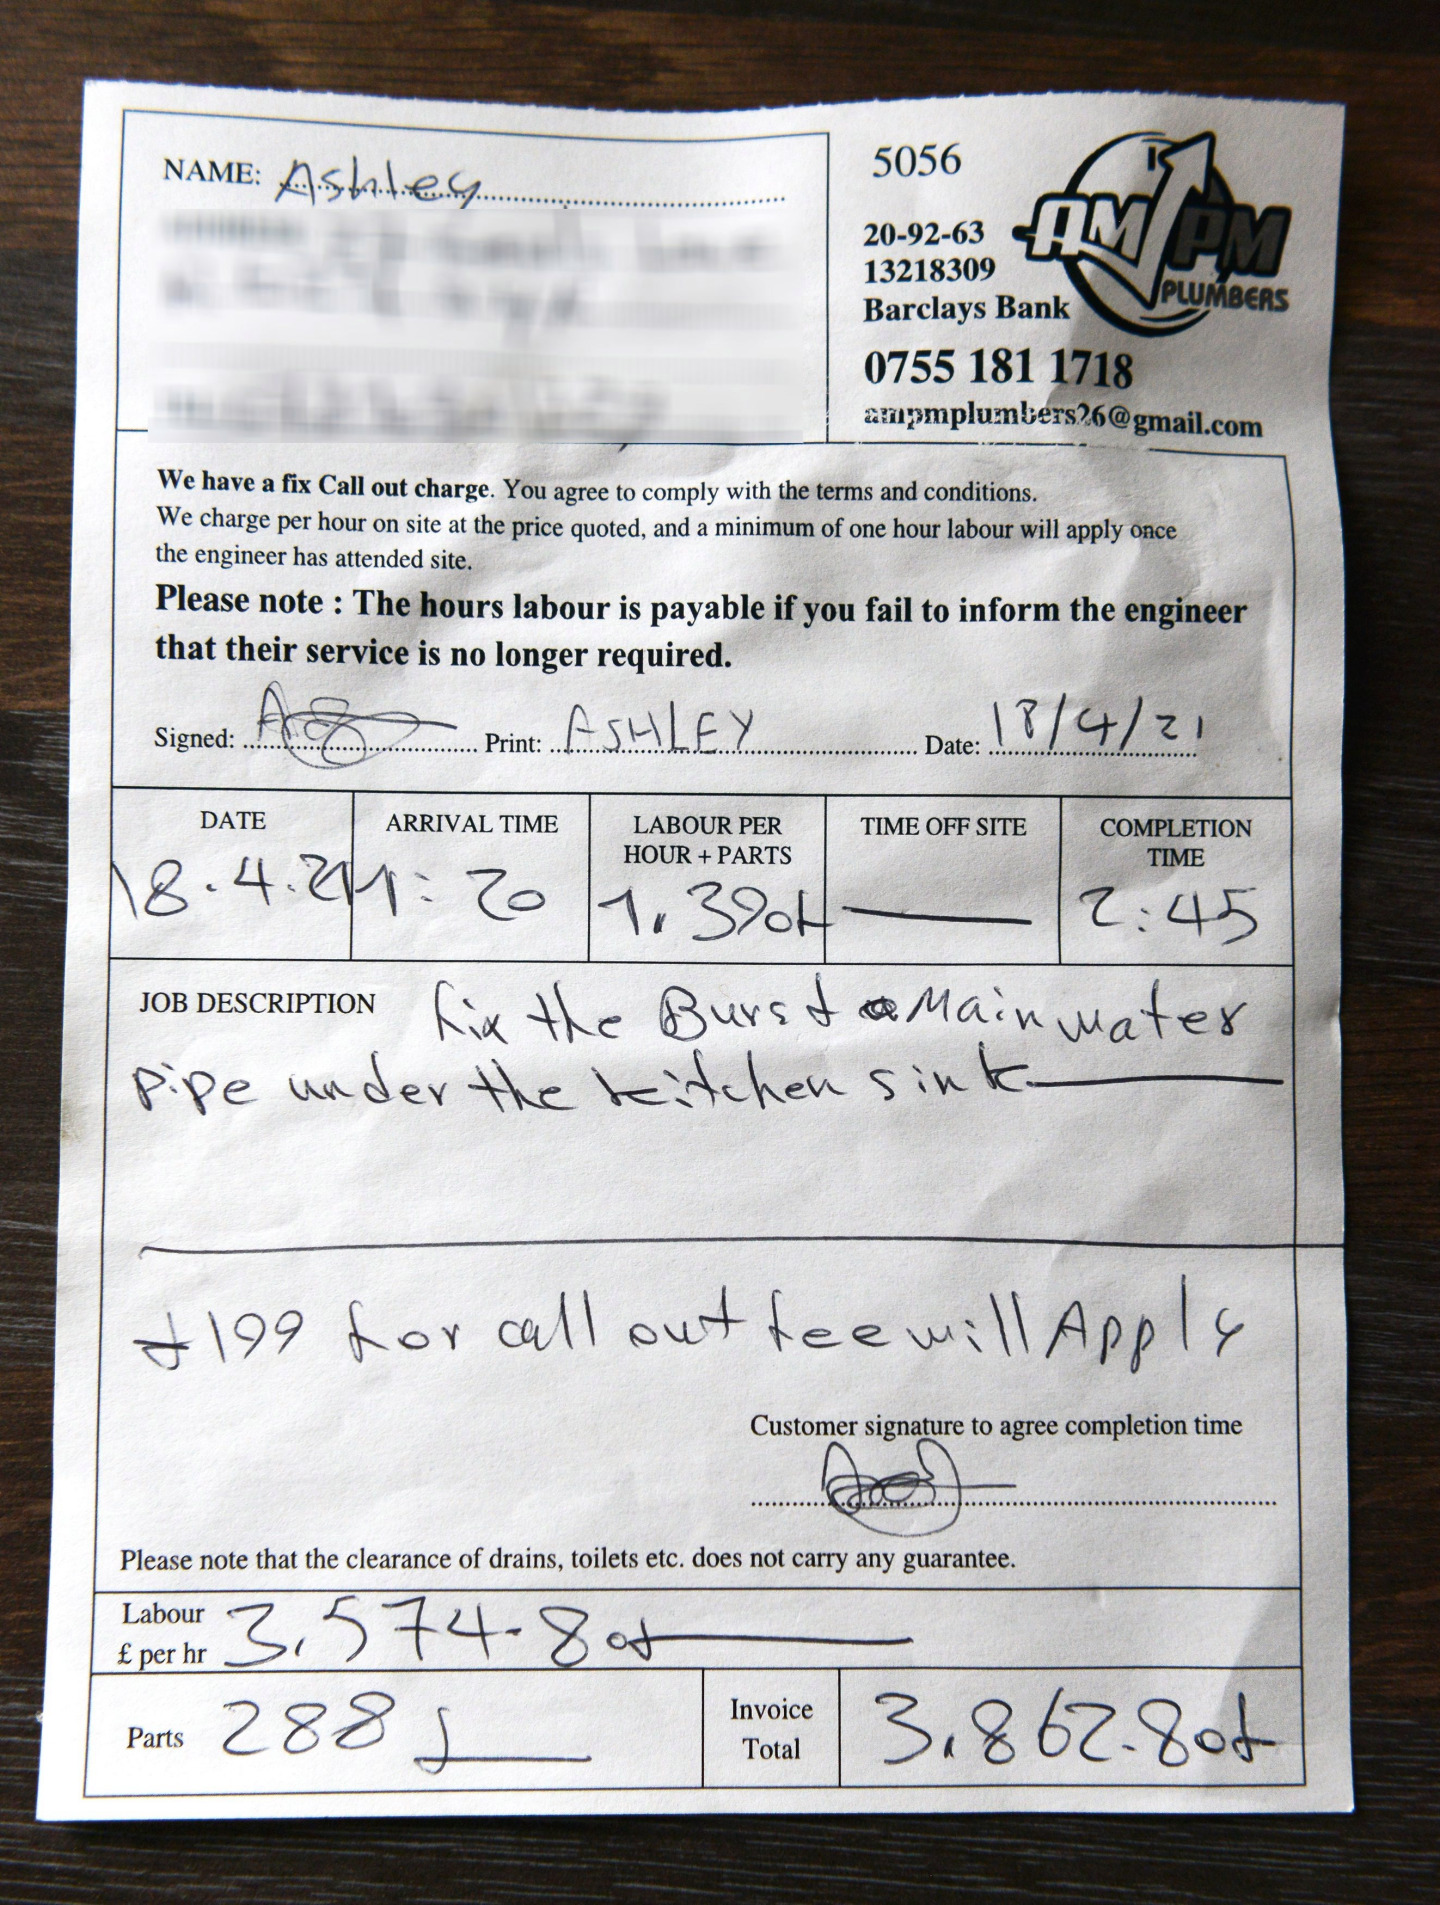 NAME: Ashley
5056
20-92-63
13218309
Barclays Bank
AM PM
PLUMBERS
0755 181 1718
ampmplumbers26@gmail.com
We have a fix Call out charge. You agree to comply with the terms and conditions.
We charge per hour on site at the price quoted, and a minimum of one hour labour will apply once
the engineer has attended site.
Please note : The hours labour is payable if you fail to inform the engineer
that their service is no longer required.
Signed: Print: ASHLEY Date: 18/4/21
DATE
18.4.21
ARRIVAL TIME
1:20
LABOUR PER
HOUR + PARTS
1,390£
TIME OFF SITE
COMPLETION
TIME
2:45
JOB DESCRIPTION fix the Burst Main water
pipe under the kitchen sink
£199 for call out fee will Apply
Customer signature to agree completion time
Please note that the clearance of drains, toilets etc. does not carry any guarantee.
Labour
£ per hr
3,574.80£
Parts 288£
Invoice
Total
3,862.80£